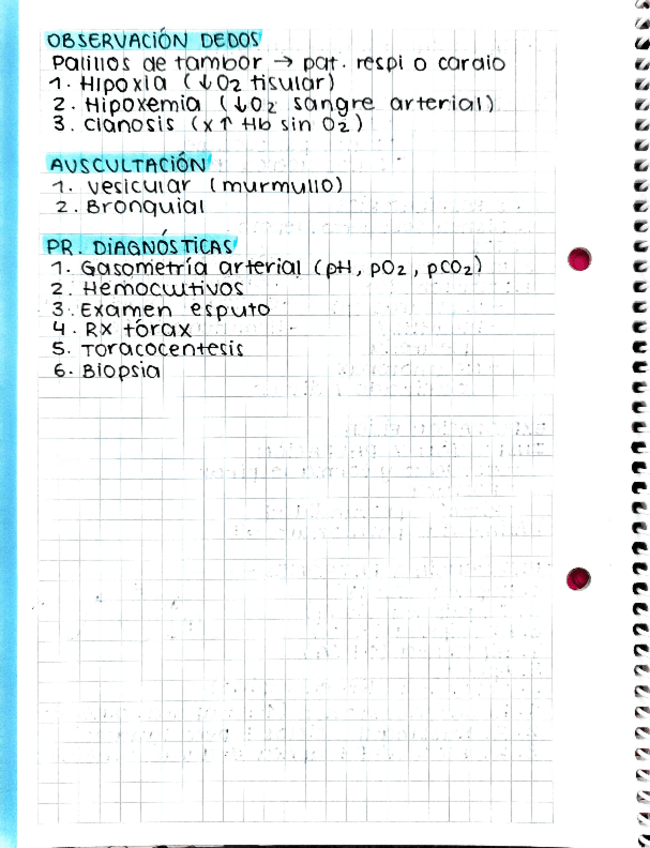 OBSERVACIÓN DEDOS
Palillos de tambor → pat. respi o cardio
1. Hipoxia (↓O2 tisular)
2. Hipoxemia (↓O2 sangre arterial)
3. cianosis (x ↑ Hb sin O2)
AUSCULTACIÓN
1. vesicular (murmullo)
2. Bronquial
PR. DIAGNÓSTICAS
1. Gasometría arterial (pH, pO2, pCO2)
2. Hemocultivos
3. Examen esputo
4. Rx tórax
5. Toracocentesis
6. Biopsia